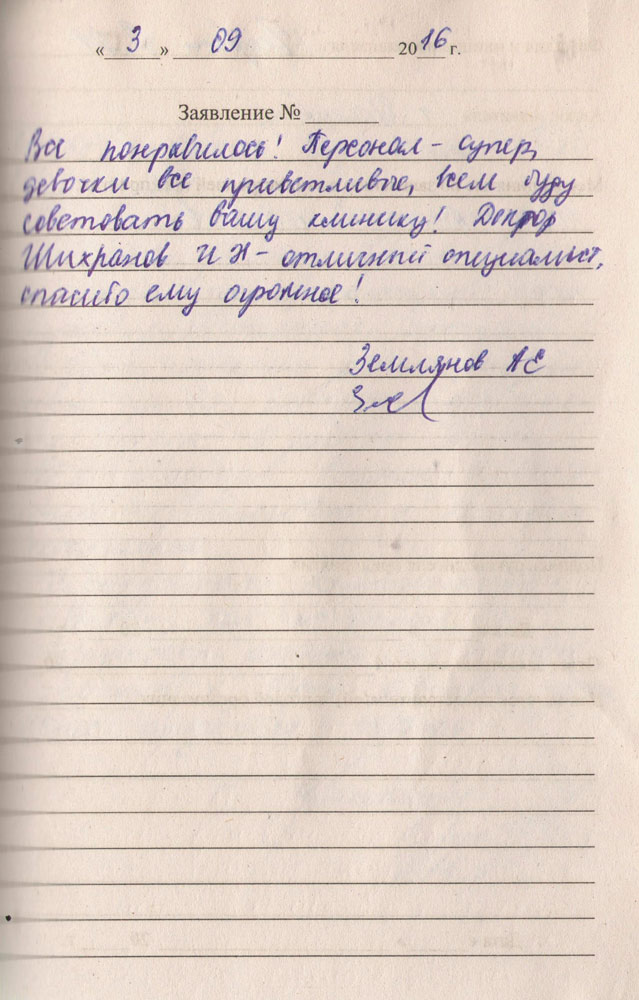 « 3 » 09 2016 г.
Заявление №
Все понравилось! Персонал - супер,
девочки все приветливые, всем буду
советовать вашу клинику! Доктор
Шихранов И Н - отличный специалист,
спасибо ему огромное!
Землянов АЕ